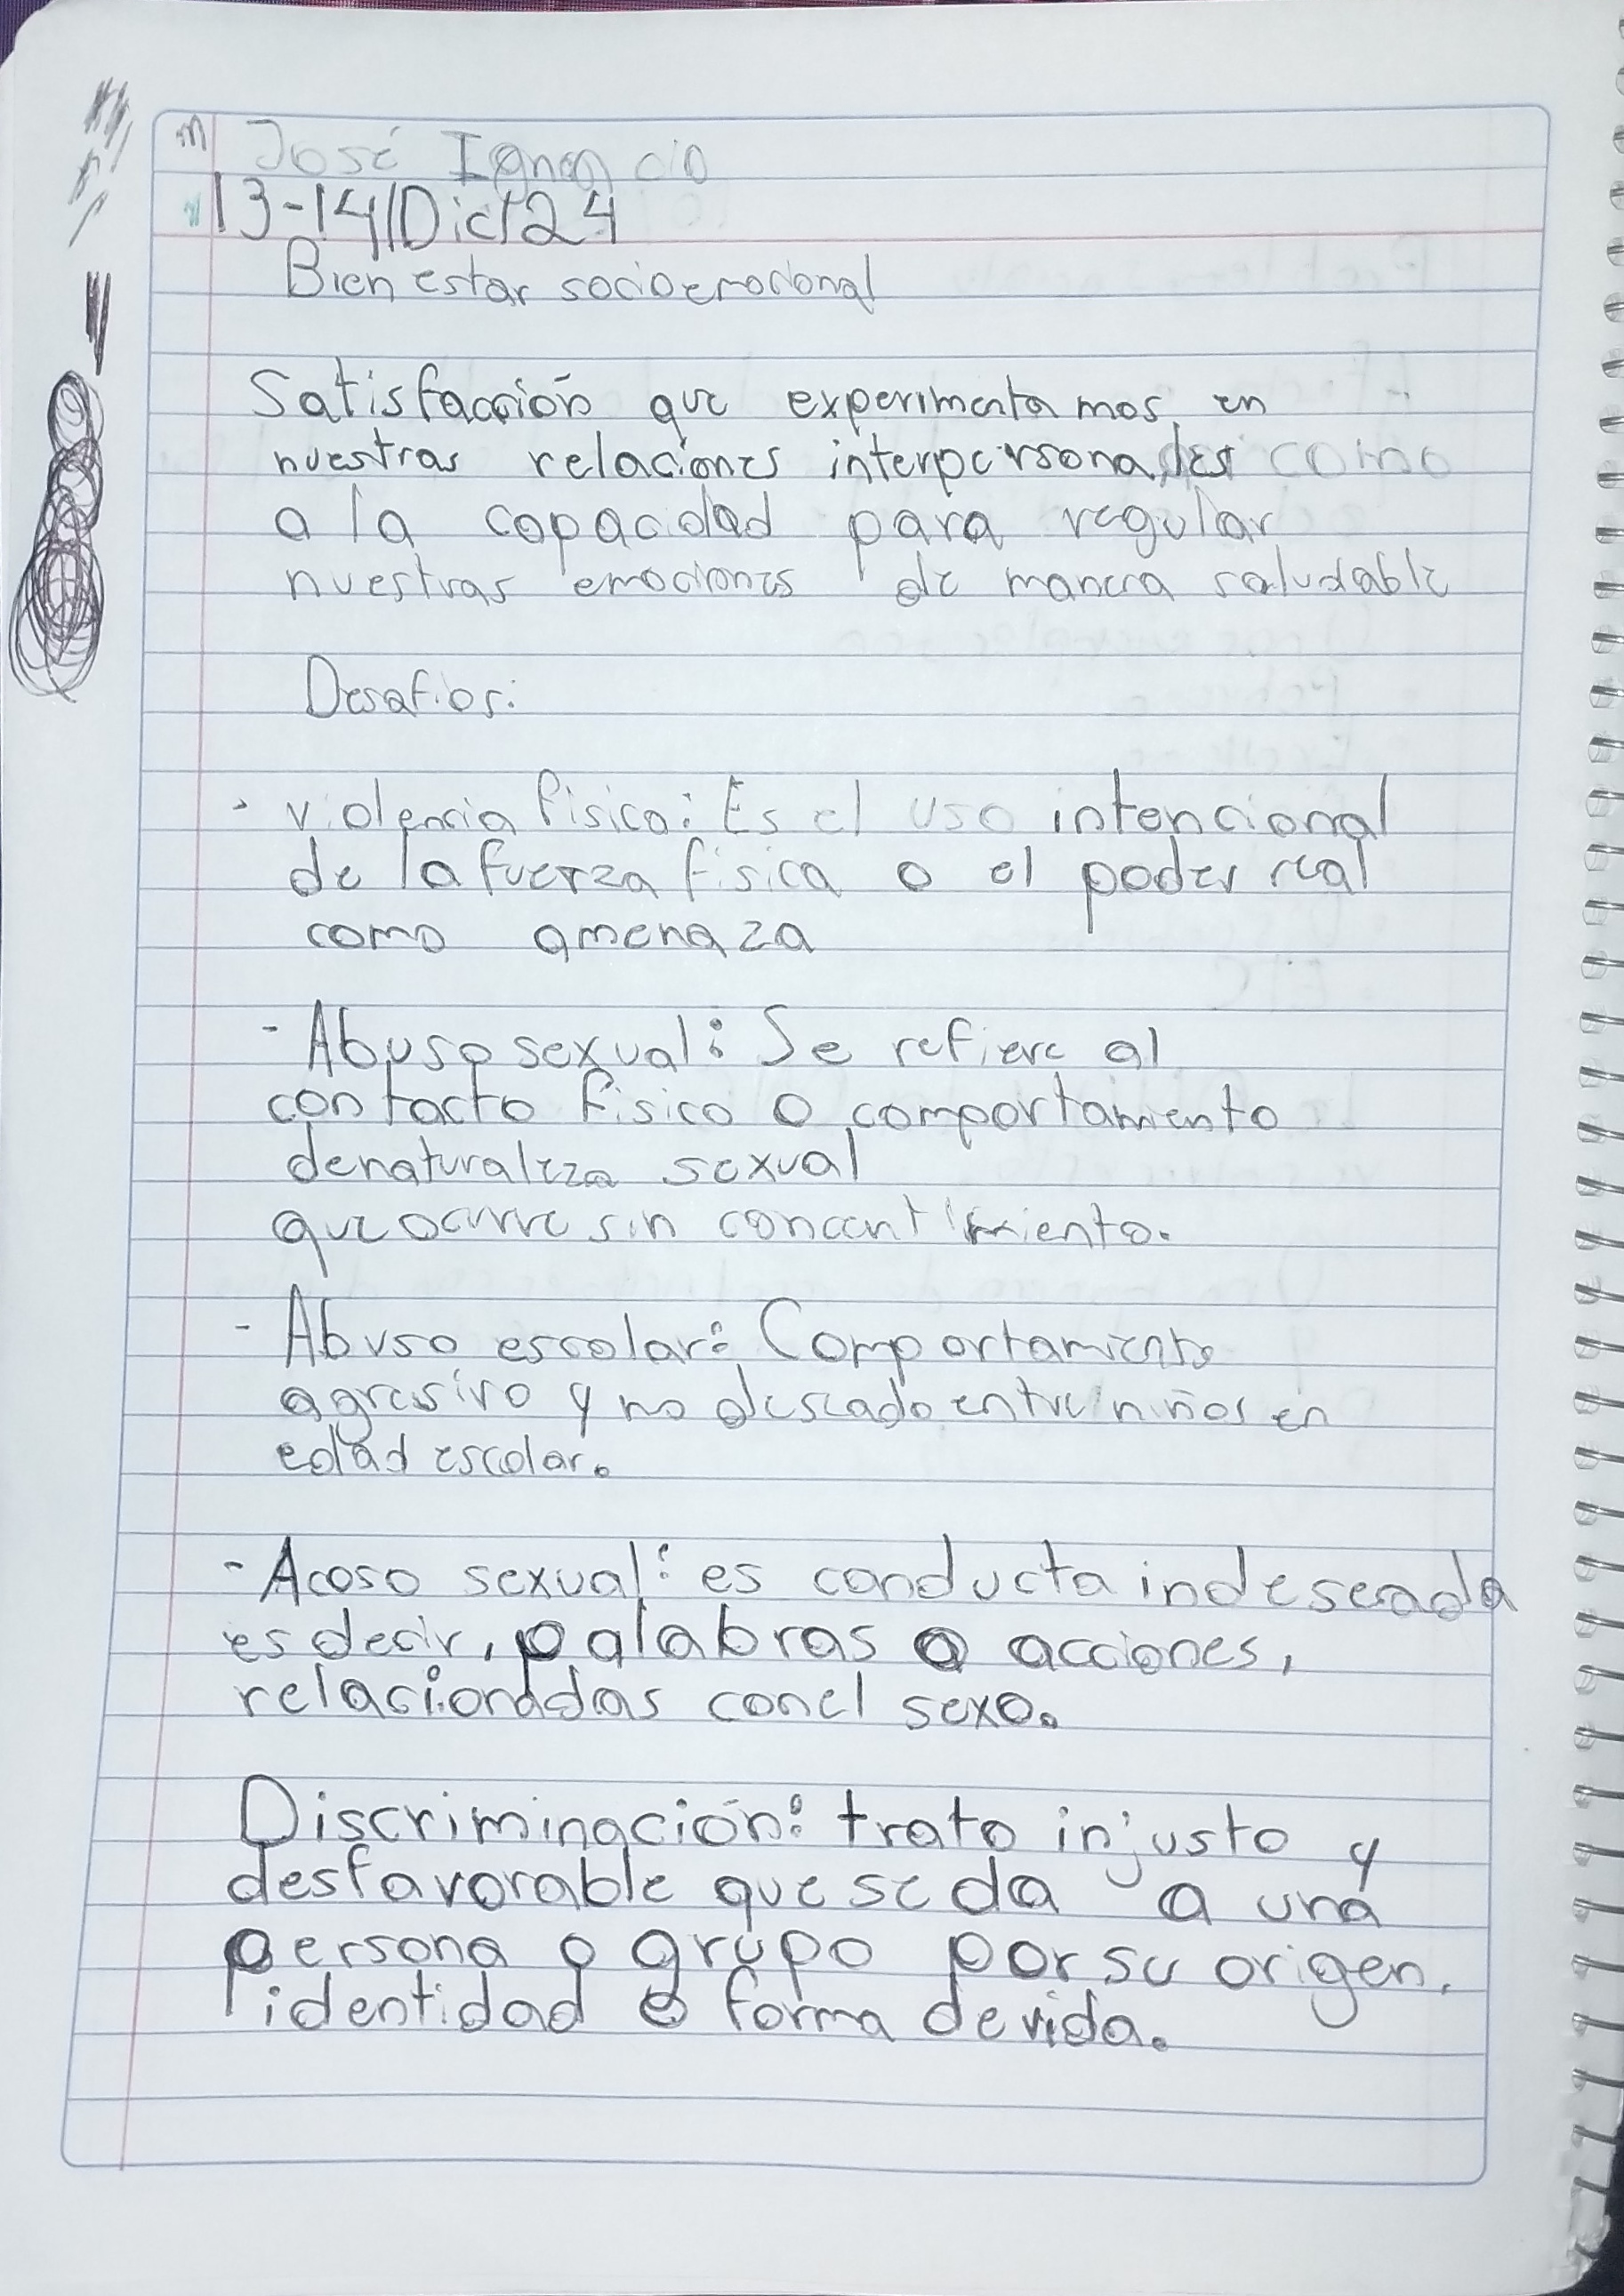 José Ignacio
13-14/Dic/24
Bien estar socioemocional
Satisfacción que experimentamos en
nuestras relaciones interpersonales como
a la capacidad para regular
nuestras emociones de manera saludable
Desafios:
- violencia fisica: Es el uso intencional
de la fuerza fisica o el poder real
como amenaza
- Abuso sexual: Se refiere al
contacto fisico o comportamiento
denaturaliza sexual
que ocurre sin concentimiento.
- Abuso escolar: Comportamiento
agresivo y no deseado entre niños en
edad escolar.
- Acoso sexual: es conducta indeseada
es decir, palabras o acciones,
relacionadas con el sexo.
Discriminación: trato injusto y
desfavorable que se da a una
persona o grupo por su origen,
identidad o forma de vida.